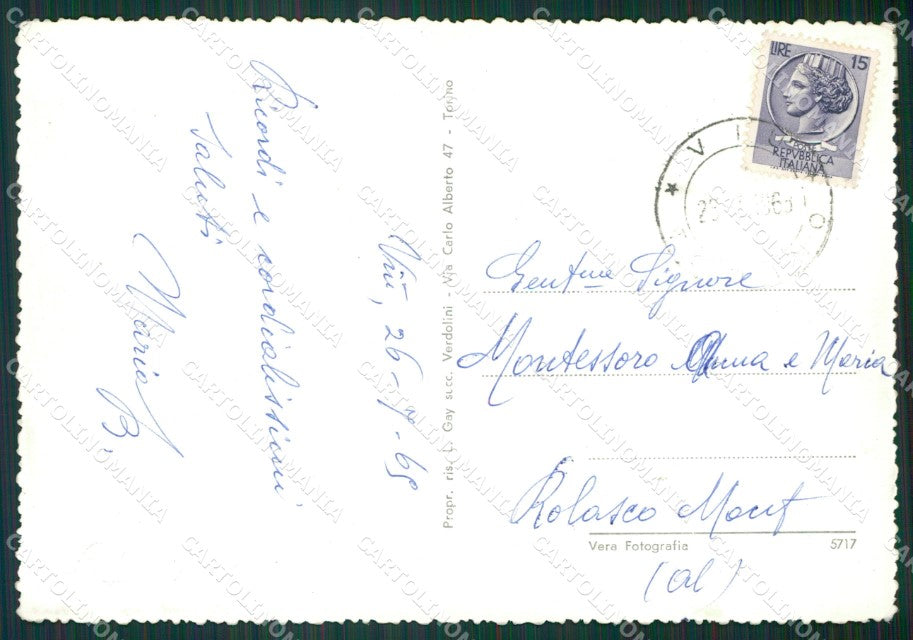 Ricordi e cordialissimi
saluti
Maria B.
Viù, 26-7-65
Propr. ris. L. Gay succ. Verdolini - Via Carlo Alberto 47 - Torino
LIRE 15
REPVBBLICA
ITALIANA
Gent.me Signore
Montessoro Anna e Maria
Rolasco Monf
Vera Fotografia 5717
(Al)
CARTOLINOMANIA